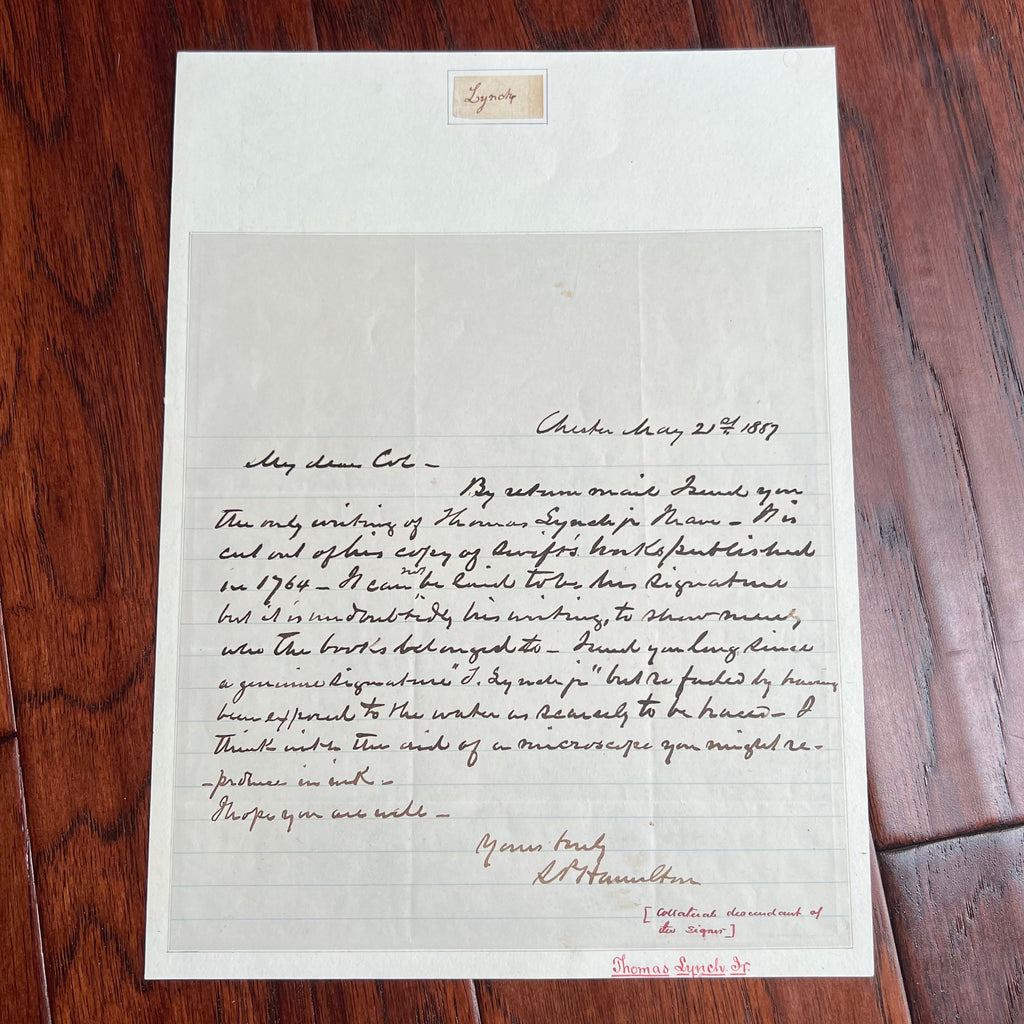 Lynch
Chester May 21st 1887
My dear Col -
By return mail I send you
the only writing of Thomas Lynch jr I have - It is
cut out of his copy of Swift's works published
in 1764 - It can not be said to be his signature
but it is undoubtedly his writing, to show merely
who the books belonged to - I send you long since
a genuine signature "T. Lynch jr" but so faded by having
been exposed to the water as scarcely to be traced - I
think with the aid of a microscope you might re-
-produce in ink -
I hope you are well -
Yours truly
S P Hamilton
[Collateral descendant of
the Signer]
Thomas Lynch Jr.